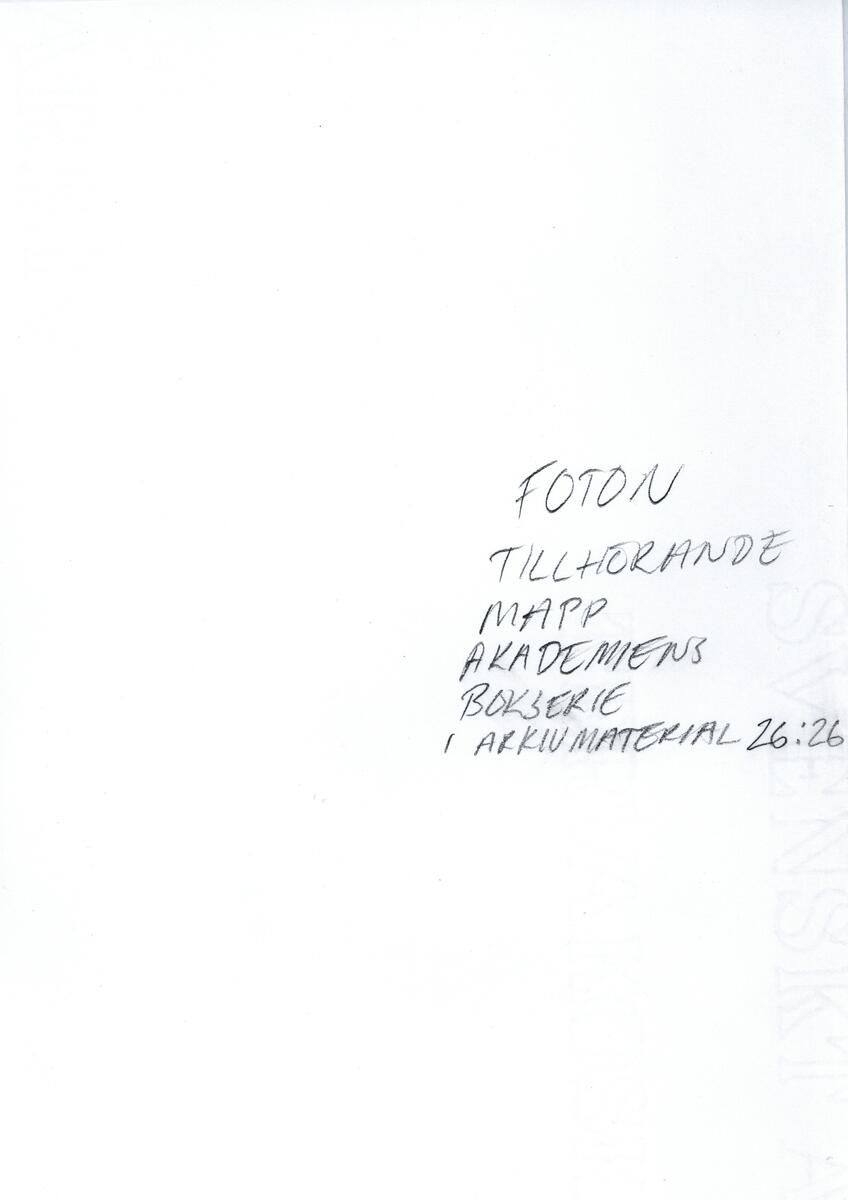 FOTON
TILLHÖRANDE
MAPP
AKADEMIENS
BOKSERIE
I ARKIVMATERIAL 26:26